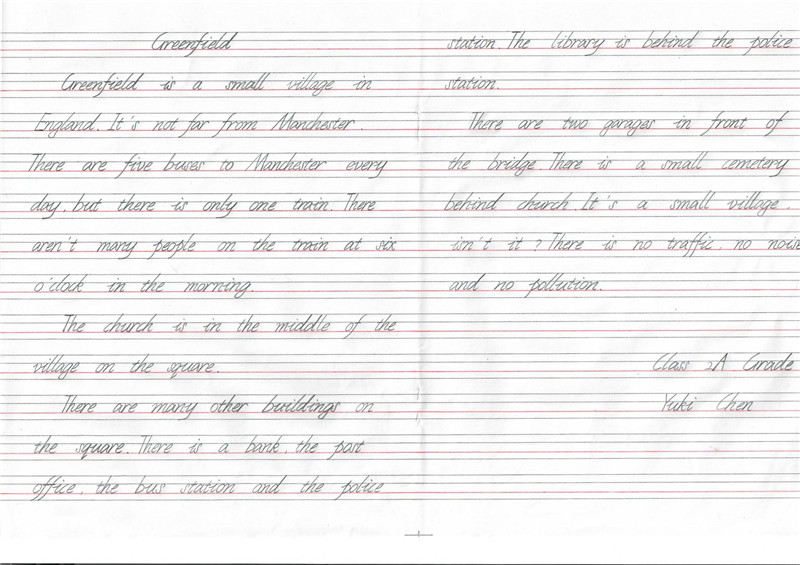 Greenfield
Greenfield is a small village in
England. It's not far from Manchester.
There are five buses to Manchester every
day, but there is only one train. There
aren't many people on the train at six
o'clock in the morning.
The church is in the middle of the
village on the square.
There are many other buildings on
the square. There is a bank, the post
office, the bus station and the police
station. The library is behind the police
station.
There are two garages in front of
the bridge. There is a small cemetery
behind church. It's a small village,
isn't it? There is no traffic, no noise
and no pollution.
Class 2A Grade
Yuki Chen